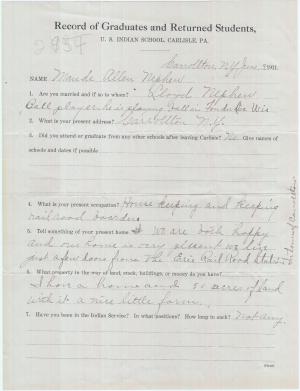 Record of Graduates and Returned Students,
U. S. INDIAN SCHOOL, CARLISLE, PA.
2957
Carrollton N.Y. Jan. 1911.
NAME Maude Allen Nephew
1. Are you married and if so to whom? Lloyd Nephew
Ball player he is playing ball in Fond du Lac Wis
2. What is your present address? Carrollton N.Y.
3. Did you attend or graduate from any other schools after leaving Carlisle? No. Give names
of schools and dates if possible
4. What is your present occupation? House keeping and keeping
railroad boarders
5. Tell something of your present home We are both happy
and our home is very pleasant we live
just a few doors from the Erie Rail Road Station
in town of Carrollton
6. What property in the way of land, stock, buildings, or money do you have?
I have a home and 50 acres of land
with it a nice little farm.
7. Have you been in the Indian Service? In what positions? How long in each? Not any.